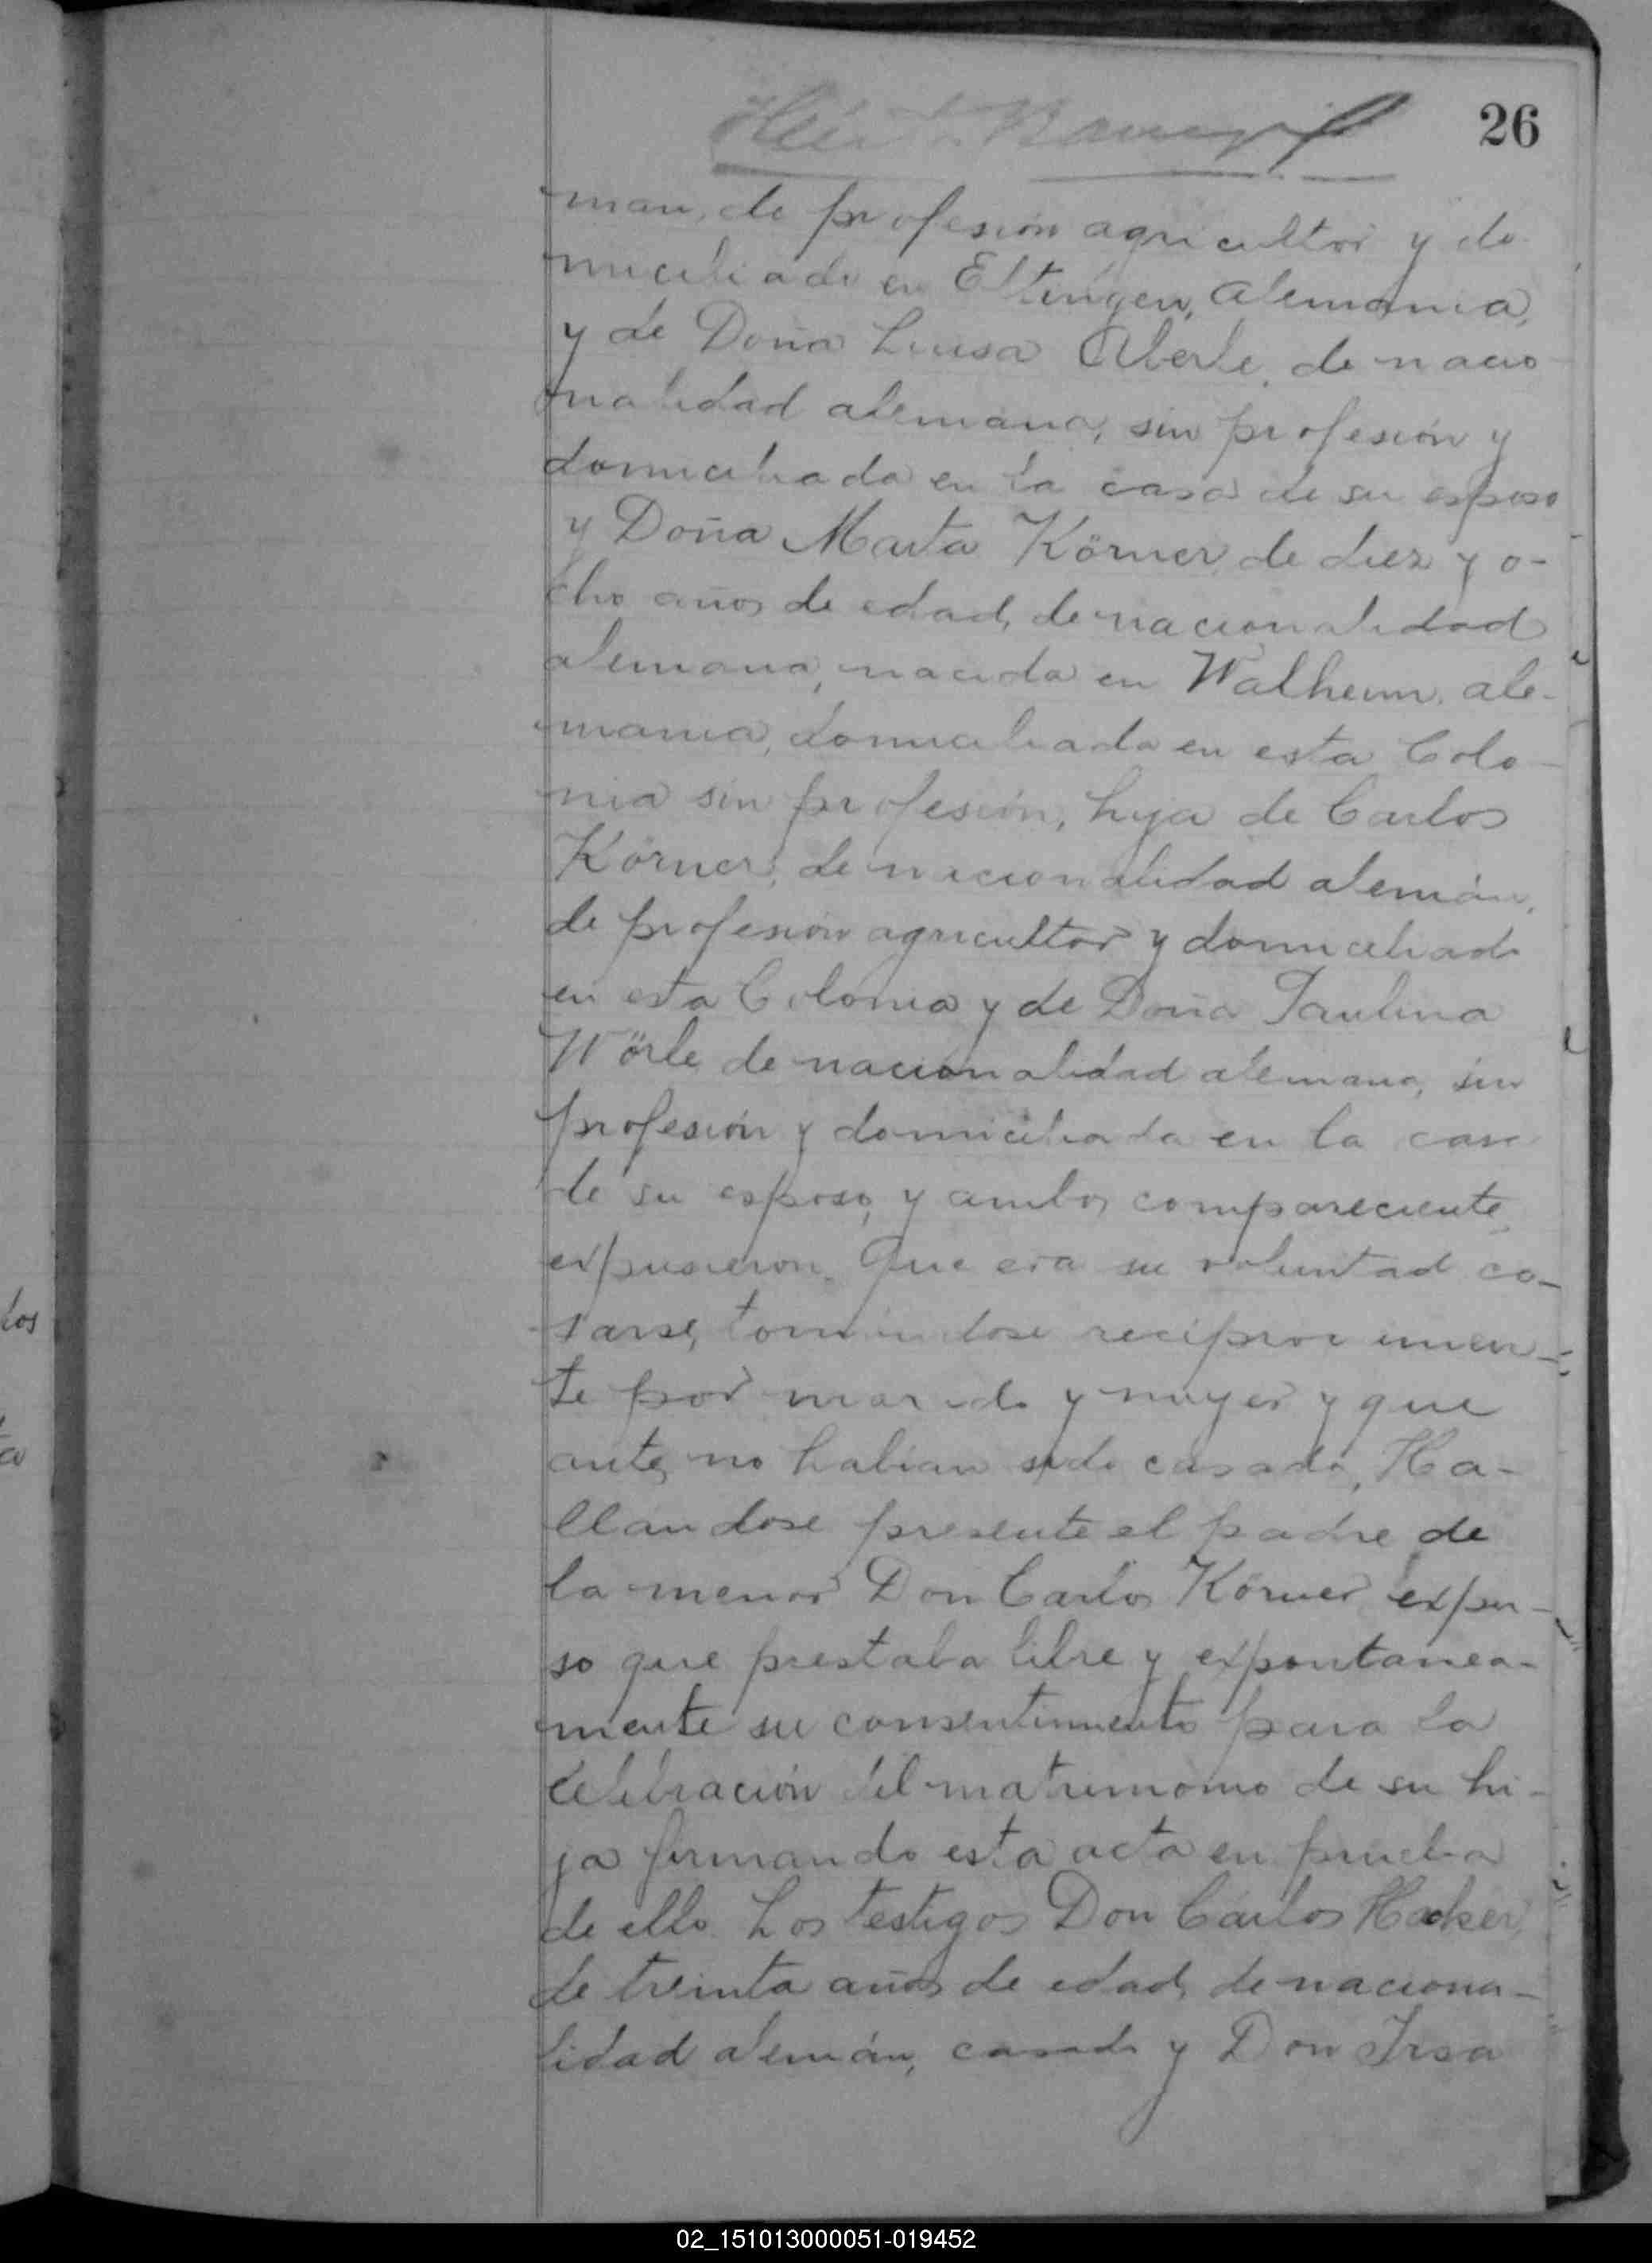 26
man, de profesión agricultor y do-
miciliado en Eltingen, Alemania,
y de Doña Luisa Aberle, de nacio-
nalidad alemana, sin profesión y
domiciliada en la casa de su esposo
y Doña Marta Körner, de diez y o-
cho años de edad, de nacionalidad
alemana, nacida en Walheim, ale-
mania, domiciliada en esta Colo-
nia sin profesión, hija de Carlos
Körner, de nacionalidad alemán,
de profesión agricultor y domiciliado
en esta Colonia y de Doña Paulina
Wörle de nacionalidad alemana, sin
profesión y domiciliada en la casa
de su esposo, y ambos compareciente
expusieron. Que era su voluntad ca-
sarse, tomándose recíprocamen-
te por marido y mujer y que
antes no habian sido casado, Ha-
llandose presente el padre de
la menor Don Carlos Körner expu-
so que prestaba libre y expontanea-
mente su consentimiento para la
celebración del matrimonio de su hi-
ja firmando esta acta en prueba
de ello. Los testigos Don Carlos Hacker,
de treinta años de edad, de naciona-
lidad alemán, casado y Don Irsa
los
a
02_151013000051-019452